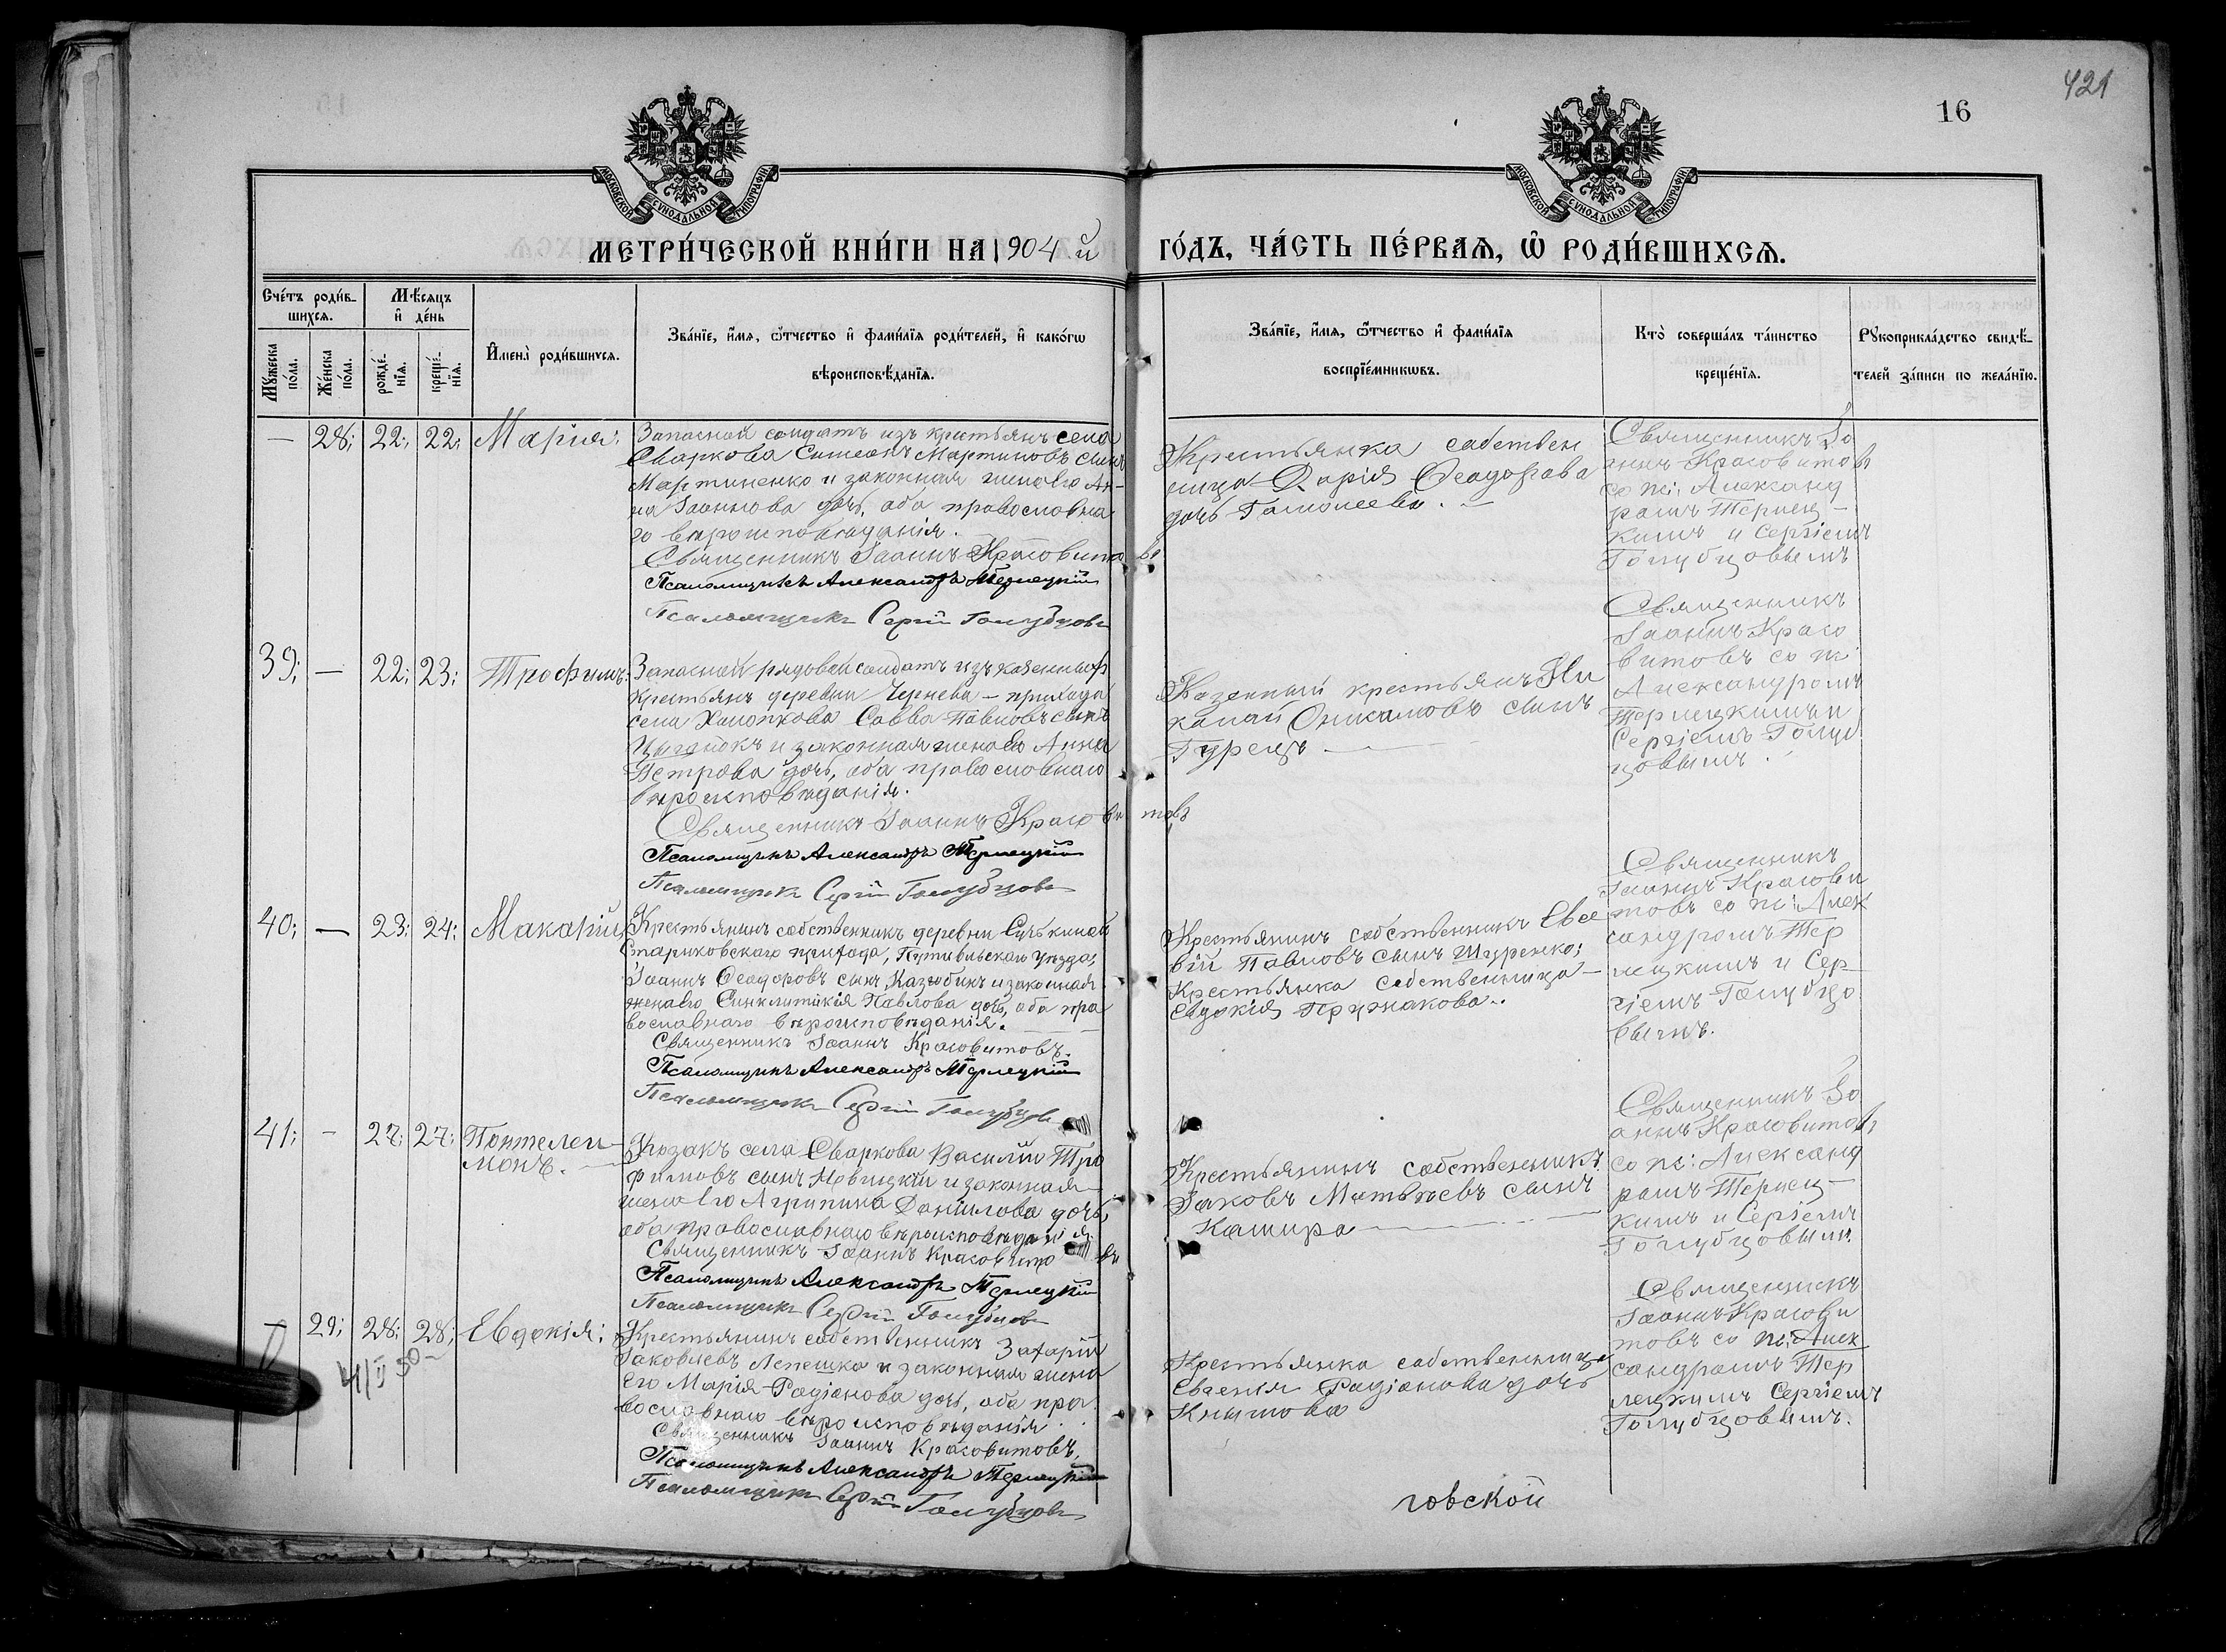 421
16
МОСКОВСКОЙ СѴНОДАЛЬНОЙ ТИПОГРАФІИ
МОСКОВСКОЙ СѴНОДАЛЬНОЙ ТИПОГРАФІИ
МЕТРИ́ЧЕСКОЙ КНИ́ГИ НА 1904 й ГО́ДЪ, ЧА́СТЬ ПЕ́РВАѦ, Ѡ РОДИ́ВШИХСѦ.
Сче́тъ роди́в-
шихсѧ.
Мꙋ́жеска по́ла.
Же́нска по́ла.
Мѣ́сѧцъ и҆ де́нь
рожде́-
нїѧ.
креще́-
нїѧ.
И҆мена̀ роди́вшихсѧ.
Зва́нїе, и҆́мѧ, ѻ҆́тчество и҆ фами́лїѧ роди́телей, и҆ како́гѡ
вѣроисповѣ́данїѧ.
Зва́нїе, и҆́мѧ, ѻ҆́тчество и҆ фами́лїѧ
воспрїе́мникѡвъ.
Кто̀ соверша́лъ та́инство
креще́нїѧ.
Рꙋкоприкла́дство свидѣ́-
телей за́писи по жела́нїю.
— 28; 22; 22; Марія;
Запасной солдатъ изъ крестьянъ села
Сваркова Симеонъ Мартиновъ сынъ
Мартиненко и законная жена его Ан-
на Іоаннова дочь, оба православна
го вѣроисповѣданія.
Священникъ Іоаннъ Красовитовъ
Псаломщикъ Александръ Терлецкій
Псаломщикъ Сергій Голубцовъ
Крестьянка собствен
ница Дарія Ѳеодорова
дочь Гамолеева. —
Священникъ Іо
аннъ Красовитовъ
со пс: Александ
ромъ Терлец-
кимъ и Сергіемъ
Голубцовымъ
39; — 22; 23; Трофимъ;
Запасной рядовой солдатъ изъ казенныхъ
крестьянъ деревни Чернева — прихода
села Холопкова Савва Павловъ сынъ
Цыганокъ и законная жена его Анна
Петрова дочь, оба православнаго
вѣроисповѣданія.
Священникъ Іоаннъ Красовитовъ
Псаломщикъ Александръ Терлецкій
Псаломщикъ Сергій Голубцовъ
Казенный крестьянъ Ни
калай Онисимовъ сынъ
Гурецъ —
Священникъ
Іоаннъ Красо
витовъ со пс:
Александромъ
Терлецкимъ и
Сергіемъ Голуб
цовымъ.
40; — 23; 24; Макарій;
Крестьянинъ собственникъ деревни
Стариковскаго прихода, Путивльскаго уѣзда,
Іоаннъ Ѳеодоровъ сынъ Казюбинъ и законная
жена его Синклитикія Павлова дочь, оба пра
вославнаго вѣроисповѣданія. —
Священникъ Іоаннъ Красовитовъ.
Псаломщикъ Александръ Терлецкій
Псаломщикъ Сергій Голубцовъ
Крестьянинъ собственникъ Евсе
вій Павловъ сынъ Шуренко;
Крестьянка собственница —
Евдокія Пружакова..
Священникъ
Іоаннъ Красови
товъ со пс: Алек
сандромъ Тер
лецкимъ и Сер-
гіемъ Голубцо
вымъ.
41; - 27; 27; Понтелеи-
монъ. —
Козакъ села Сваркова Василій Тро
фимовъ сынъ Левицкій и законная
жена его Агрипина Даніилова дочь,
оба православнаго вѣроисповѣданія.
Священникъ Іоаннъ Красовитовъ
Псаломщикъ Александръ Терлецкій
Псаломщикъ Сергій Голубцовъ
Крестьянинъ собственникъ
Іаковъ Матѳѣевъ сынъ
Кашира —
Священникъ Іо
аннъ Красовитовъ
со пс: Александ
ромъ Терлец-
кимъ и Сергіемъ
Голубцовымъ.
— 29; 28; 28; Евдокія;
Крестьянинъ собственникъ Захарій
Іаковлевъ Лепешка и законная жена
его Марія Радіонова дочь, оба пра
вославнаго вѣроисповѣданія.
Священникъ Іоаннъ Красовитовъ.
Псаломщикъ Александръ Терлецкій
Псаломщикъ Сергій Голубцовъ
Крестьянка собственница
Евгенія Радіонова дочь
Кнышова
Священникъ
Іоаннъ Красови
товъ со пс: Алек
сандромъ Тер
лецкимъ Сергіемъ
Голубцовымъ.
говской